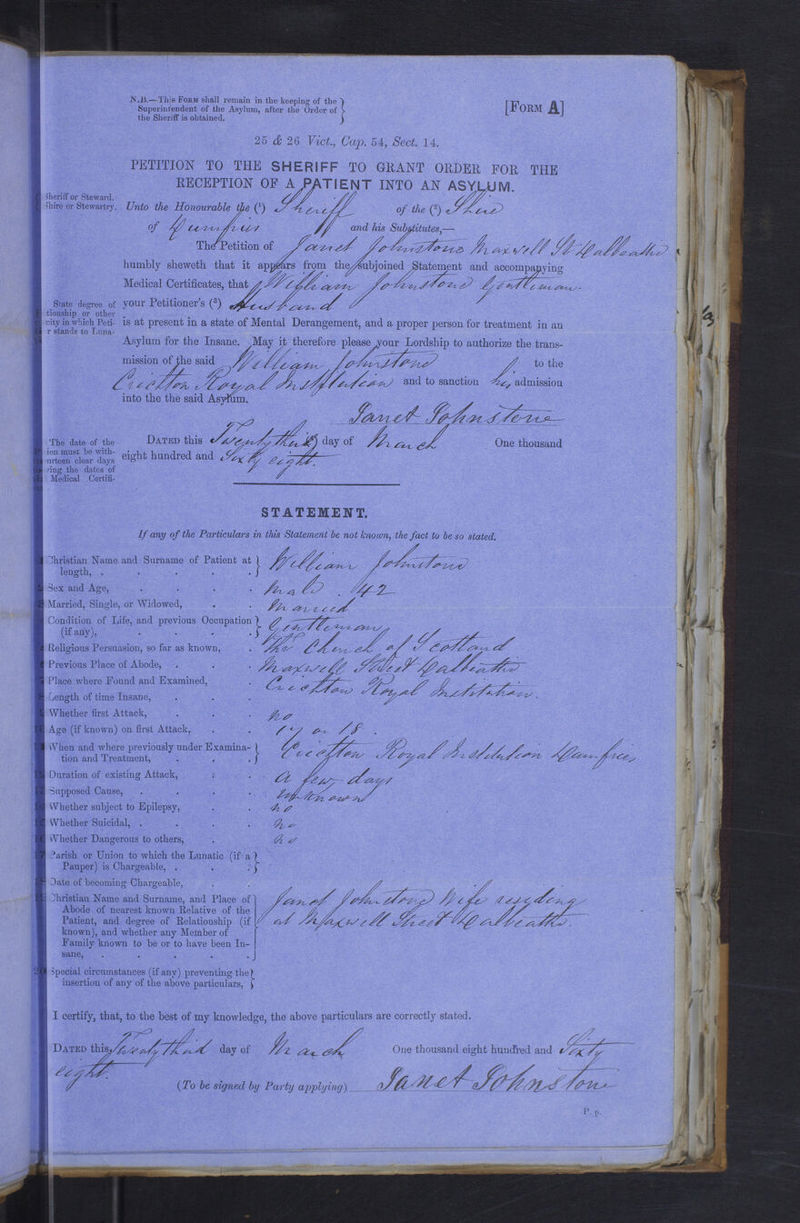 N.B.—This Form shall remain in the keeping of the
Superintendent of the Asylum, after the Order of
the Sheriff is obtained.
[Form A]
25 & 26 Vict., Cap. 54, Sect. 14.
PETITION TO THE SHERIFF TO GRANT ORDER FOR THE
RECEPTION OF A PATIENT INTO AN ASYLUM.
Sheriff or Steward.
Shire or Stewartry.
Unto the Honourable the (1) Sheriff of the (2) Shire
of Dumfries and his Substitutes,—
The Petition of Janet Johnstone Maxwell St Dalbeattie
humbly sheweth that it appears from the subjoined Statement and accompanying
Medical Certificates, that William Johnstone Gentleman
State degree of
tionship or other
city in which Peti-
r stands to Luna-
your Petitioner's (3) Husband
is at present in a state of Mental Derangement, and a proper person for treatment in an
Asylum for the Insane. May it therefore please your Lordship to authorize the trans-
mission of the said William Johnstone to the
Crichton Royal Institution and to sanction his admission
into the the said Asylum.
Janet Johnstone
The date of the
ion must be with-
urteen clear days
ving the dates of
Medical Certifi-
Dated this Twenty third day of March One thousand
eight hundred and Sixty eight.
STATEMENT.
If any of the Particulars in this Statement be not known, the fact to be so stated.
Christian Name and Surname of Patient at length, . William Johnstone
Sex and Age, Male . 42
Married, Single, or Widowed, Married
Condition of Life, and previous Occupation (if any), Gentleman
Religious Persuasion, so far as known, The Church of Scotland
Previous Place of Abode, Maxwell Street Dalbeattie
Place where Found and Examined, Crichton Royal Institution.
Length of time Insane,
Whether first Attack, no
Age (if known) on first Attack, 17 or 18.
When and where previously under Examina-
tion and Treatment, Crichton Royal Institution Dumfries
Duration of existing Attack, A few days
Supposed Cause, unknown
Whether subject to Epilepsy, no
Whether Suicidal, no
Whether Dangerous to others, no
Parish or Union to which the Lunatic (if a
Pauper) is Chargeable,
Date of becoming Chargeable,
Christian Name and Surname, and Place of
Abode of nearest known Relative of the
Patient, and degree of Relationship (if
known), and whether any Member of
Family known to be or to have been In-
sane,
Janet Johnstone Wife residing
at Maxwell Street Dalbeattie.
Special circumstances (if any) preventing the
insertion of any of the above particulars,
I certify, that, to the best of my knowledge, the above particulars are correctly stated.
Dated this Twenty third day of March One thousand eight hundred and Sixty
eight.
(To be signed by Party applying) Janet Johnstone
P. p.